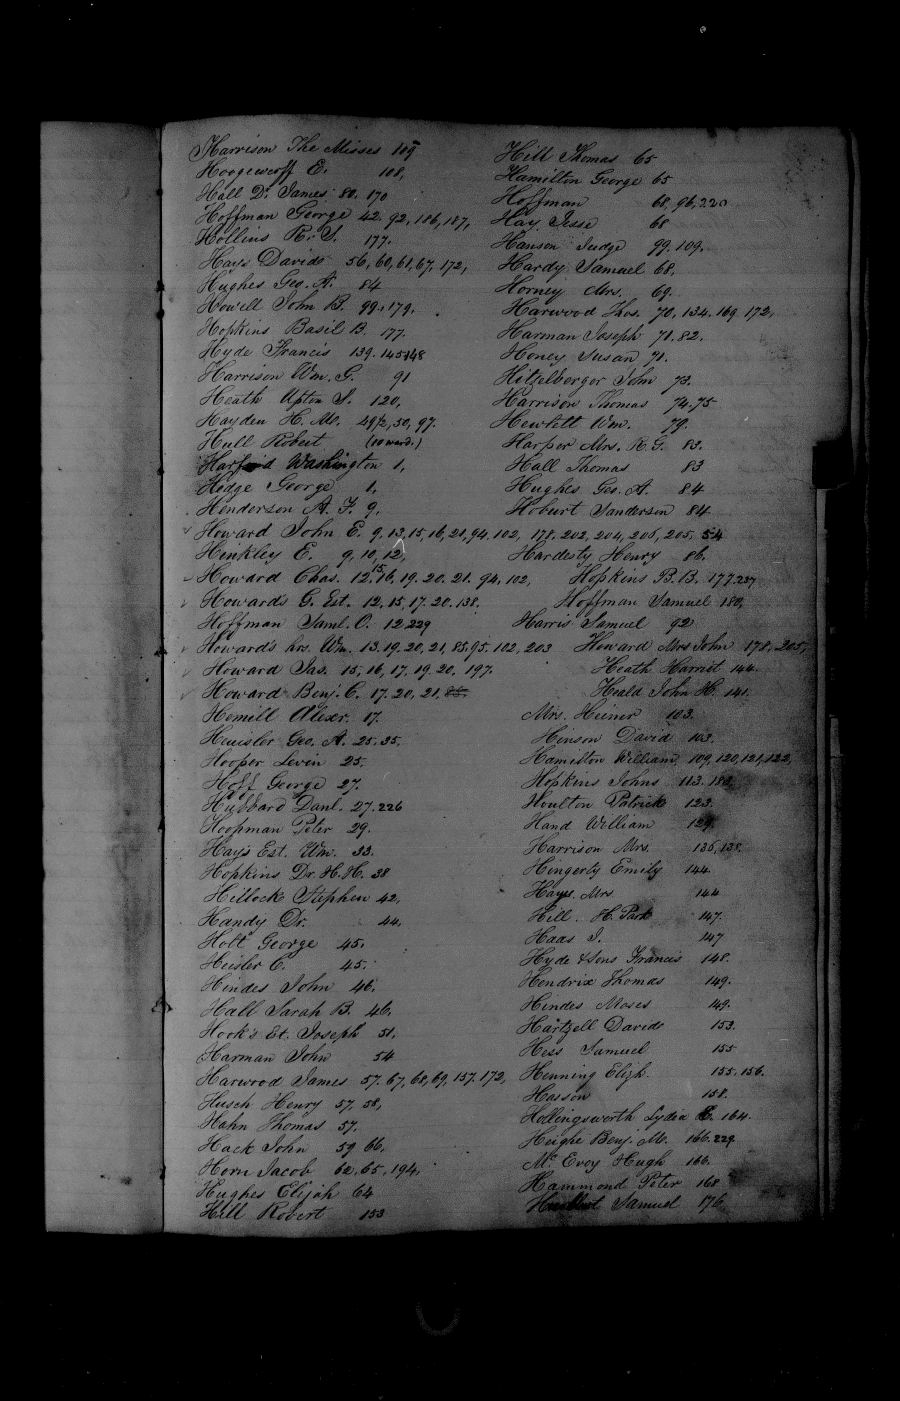 Harrison The Misses 109
Hoogewerff E. 108,
Hall Dr. James 80. 170
Hoffman George 42. 92, 186, 187,
Hollins R. S. 177.
Hays Davids 56, 60, 61, 67, 172,
Hughes Geo. A. 84
Howell John B. 99, 179.
Hopkins Basil B. 177.
Hyde Francis 139. 145 148
Harrison Wm. G. 91
Heath Upton S. 120,
Hayden H. Mc. 49 1/2, 50, 97.
Hull Robert (10 ward.)
Harford Washington 1,
Hodge George 1,
Henderson A. F. 9,
Howard John E. 9, 13, 15, 16, 20, 94, 102, 178. 202, 204, 206, 205. 54
Hinkley E. 9, 10, 12,
Howard Chas. 12. 15, 16, 19. 20. 21. 94, 102,
Howard's G. Est. 12, 15, 17. 20. 138.
Hoffman Saml. O. 12 229
Howard's hrs. Wm. 13. 19. 20, 21, 85. 95. 102, 203
Howard Jas. 15, 16, 17, 19 20, 197.
Howard Benj. C. 17. 20, 21, 85.
Hemill Alexr. 17.
Heuisler Geo. A. 25. 35.
Hooper Levin 25.
Hoff George 27.
Hubbard Danl. 27. 226
Hoopman Peter 29.
Hays Est. Wm. 33.
Hopkins Dr. H. H. 38
Hillock Stephen 42,
Handy Dr. 44,
Holt George 45.
Heisler C. 45.
Hindes John 46,
Hall Sarah B. 46,
Hook's Et. Joseph 51,
Harman John 54
Harwood James 57. 67, 68, 69, 157. 172,
Husch Henry 57, 58,
Hahn Thomas 57.
Hack John 59 66,
Horn Jacob 62, 65, 194,
Hughes Elijah 64
Hill Robert 153
Hill Thomas 65
Hamilton George 65
Hoffman 68, 96, 220
Hay Jesse 68
Hanson Judge 99. 109.
Hardy Samuel 68,
Horney Mrs. 69.
Harwood Thos. 70, 134. 169 172,
Harman Joseph 71. 82.
Honey Susan 71.
Hitzelberger John 73.
Harrison Thomas 74. 75
Hewlett Wm. 79.
Harper Mrs. R. G. 83.
Hall Thomas 83
Hughes Geo. A. 84
Hoburt Sanderson 84
Hardesty Henry 86.
Hopkins B. B. 177. 237
Hoffman Samuel 180,
Harris Samuel 92
Howard Mrs John 178, 205,
Heath Harriet 144.
Heald John H. 141.
Mrs. Heiner 103.
Henson David 103.
Hamilton William 109, 120, 121, 122,
Hopkins Johns 113. 182,
Houlton Patrick 123.
Hand William 129.
Harrison Mrs. 136, 138.
Hingerty Emily 144
Hays Mrs 144
Hill. H. Park 147.
Haas J. 147
Hyde & Sons Francis 148.
Hendrix Thomas 149.
Hindes Moses 149.
Hartzell Davids 153.
Hess Samuel 155
Henning Elizh. 155. 156.
Hasson 158.
Hollingsworth Lydia E. 164.
Heighe Benj. M. 166. 229
Mc. Evoy Hugh 166.
Hammond Peter 168
Samuel 176